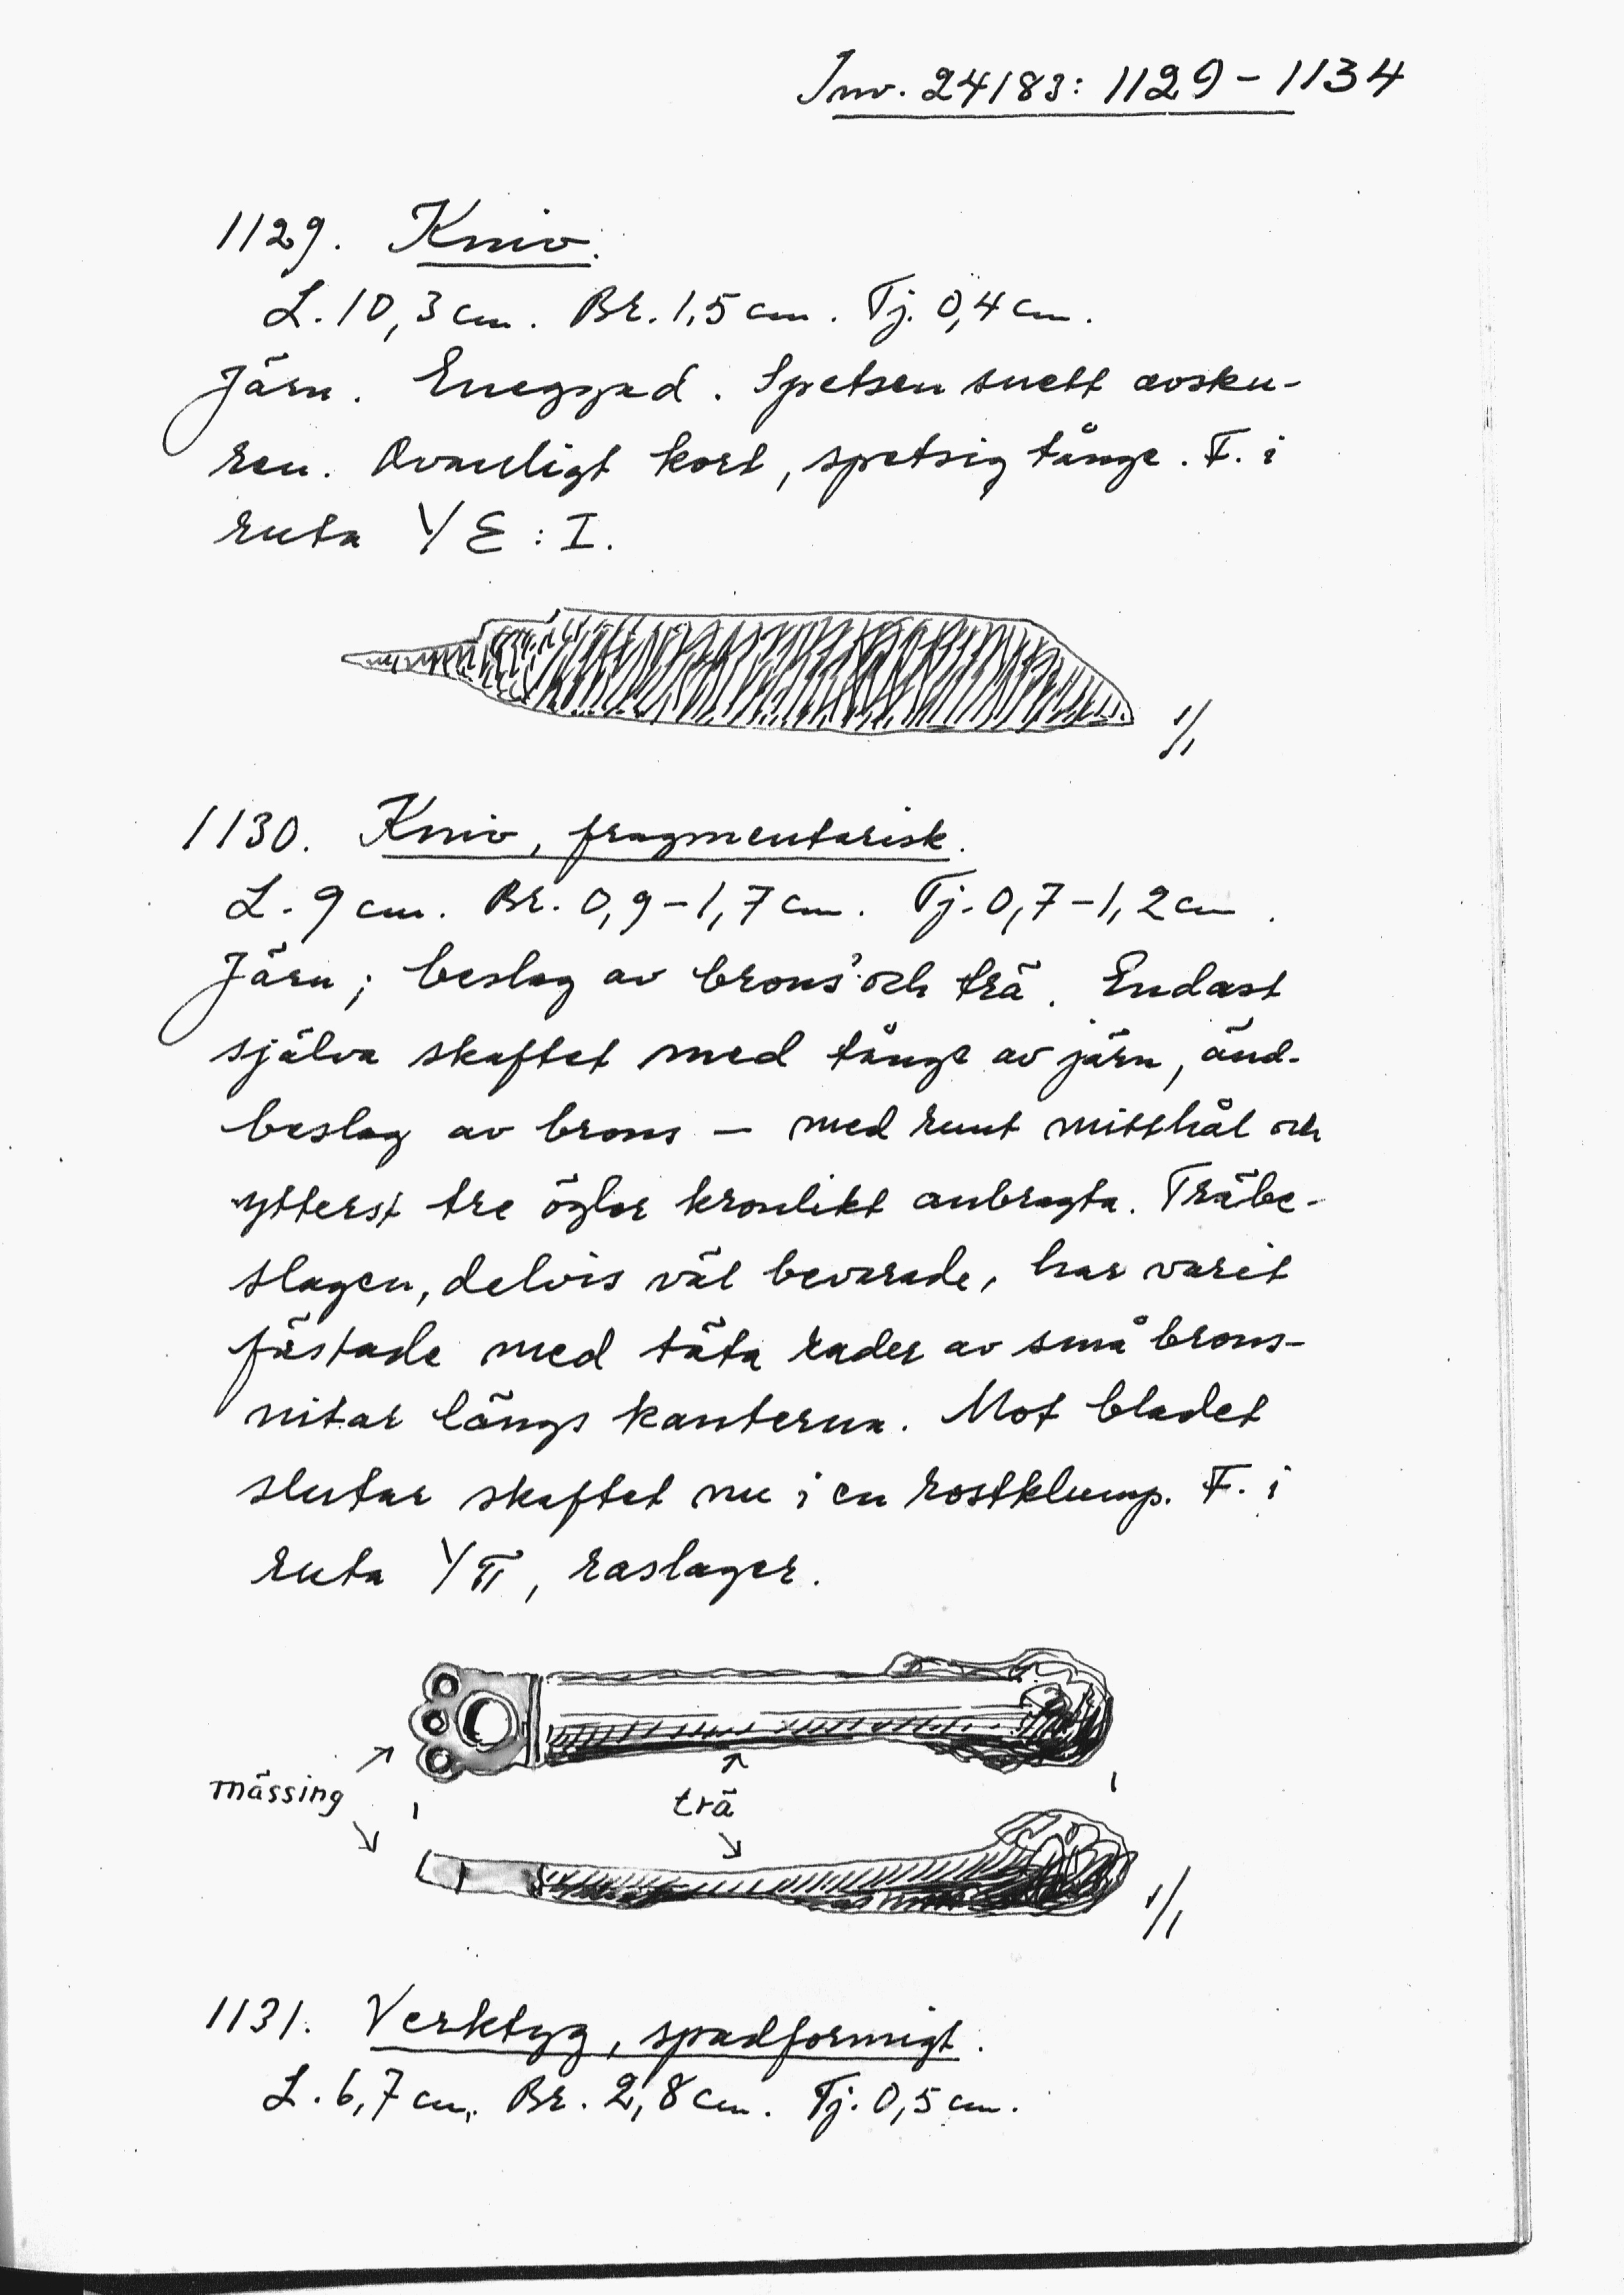 Inv. 24183: 1129-1134
1129. Kniv.
L. 10,3 cm. Br. 1,5 cm. Tj. 0,4 cm.
Järn. Eneggad. Spetsen snett avsku-
ren. Ovanligt kort, spetsig tånge. F. i
ruta Y E : I.
1/1
1130. Kniv, fragmentarisk.
L. 9 cm. Br. 0,9-1,7 cm. Tj. 0,7-1,2 cm.
Järn; beslag av brons? och trä. Endast
själva skaftet med tånge av järn, änd-
beslag av brons — med runt mitthål och
ytterst tre öglor kronlikt anbragta. Träbe-
slagen, delvis väl bevarade, har varit
fästade med täta rader av små brons-
nitar längs kanterna. Mot bladet
slutar skaftet nu i en rostklump. F. i
ruta Y π, raslager.
mässing
trä
1/1
1131. Verktyg, spadformigt.
L. 6,7 cm. Br. 2,8 cm. Tj. 0,5 cm.